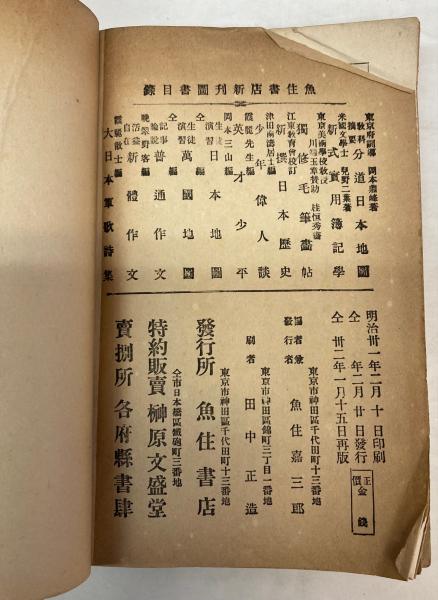 魚住書店新刊圖書目錄
東京府訓導 岡本霞峰著
教科摘要 分道日本地圖
米國文學士 兒野二葉著
新式實用簿記學
東京美術學校教授 川端玉章賛助 桂恒秀畵
獨修毛筆畵帖
江東教育會校訂
新撰日本歷史
津田兩濤居士編
少年偉人談
霞龍先生編
英才少平
岡本三山編
生徒演習 日本地圖
仝編
生徒演習 萬國地圖
仝編
記事論說 普通作文
曉翠野客編
活益自在 新體作文
霞龍散士編
大日本軍歌詩集
明治卅一年二月十日印刷
仝 年二月廿日發行
仝 卅二年一月十五日再版
正價金 錢
東京市神田區千代田町十三番地
發行者 魚住嘉三郎
東京市神田區錦町三丁目一番地
刷者 田中正造
東京市神田區千代田町十三番地
發行所 魚住書店
仝市日本橋區鐵砲町三番地
特約販賣 榊原文盛堂
賣捌所 各府縣書肆